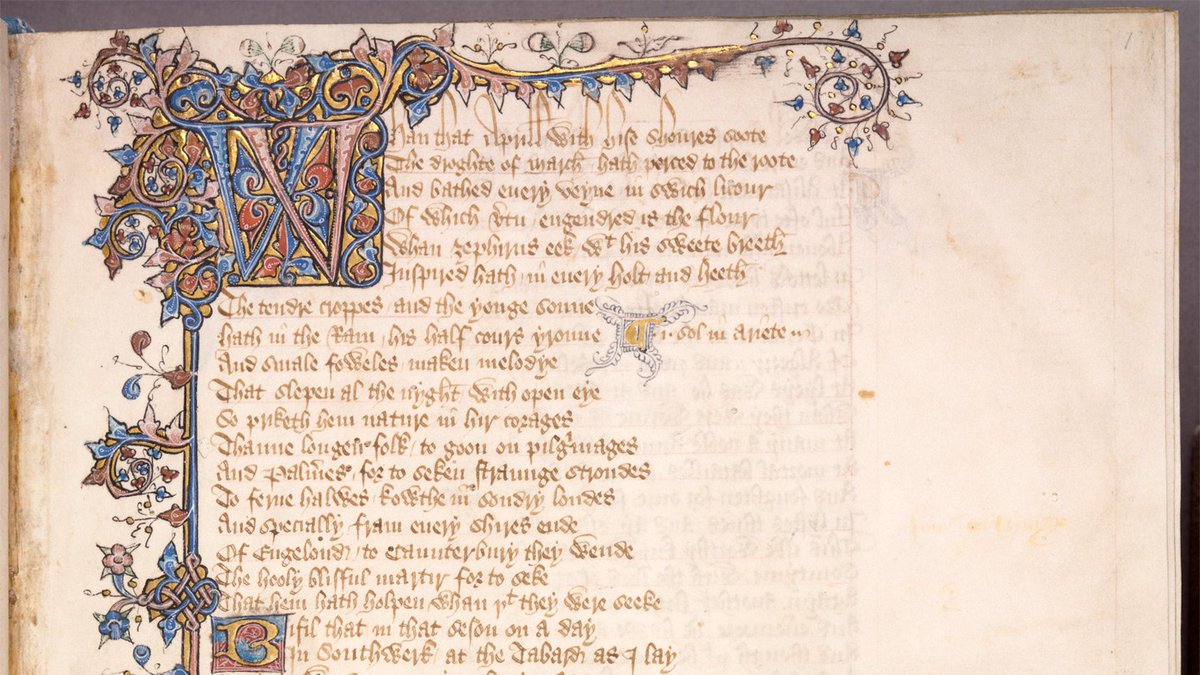 1
Whan that Aprill with hise shoures soote
The droghte of march hath perced to the roote
And bathed every veyne in swich licour
Of which v̄tu engendred is the flour
Whan zephirus eek wᵗ his sweete breeth
Inspired hath in every holt and heeth
The tendre croppes and the yonge sonne
hath in the Ram his half cours yronne
¶ .i. sol in ariete
And smale foweles maken melodye
That slepen al the nyght with open eye
So priketh hem nature in hir corages
Thanne longen folk to goon on pilgⁱmages
And Palm̄es for to seken straunge strondes
To ferne halwes kowthe in sondry londes
And specially fram every shires ende
Of Engelond to Caunterbury they wende
The hooly blisful martir for to seke
That hem hath holpen whan yᵗ they were seeke
Bifil that in that seson on a day
In Southwerk at the Tabard as I lay